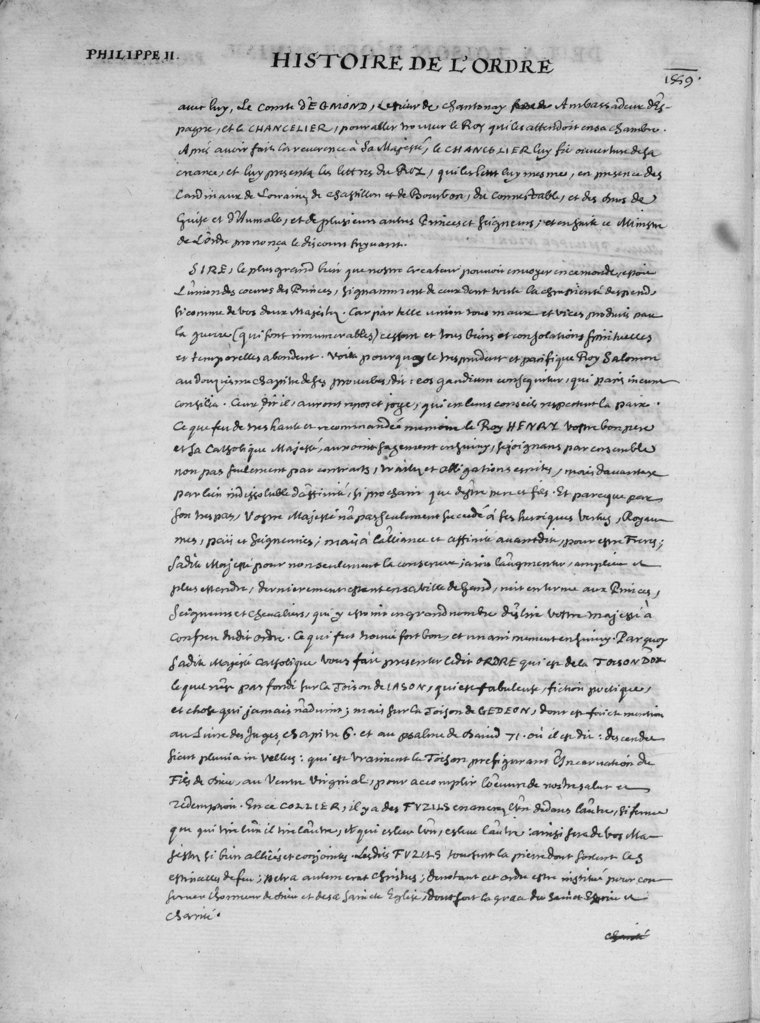 PHILIPPE II.
HISTOIRE DE L'ORDRE
1559.
avec luy, Le Comte d'EGMOND, le sieur de Chantonay Ambassadeur d'Es-
pagne, et le CHANCELIER, pour aller trouver le Roy qui les attendoit en sa chambre.
Aprés avoir fait la reverence à Sa Majesté, le CHANCELIER luy fit ouverture de sa
creance, et luy presenta les lettres du ROY, qu'il luy mesmes, en presence des
Cardinaux de Lorraine, de Chastillon et de Bourbon, du Connestable, et des ducs de
Guise et d'Aumale, et de plusieurs autres Princes et Seigneurs; et ensuite ce Ministre
de l'Ordre prononça le discours suyvant.
SIRE, le plus grand bien que nostre createur pouvoit envoyer en ce monde, estoit
L'union des coeurs des Princes, signamment de ceux dont toute la chrestienté despend,
si comme de vos deux Majestez. Car par telle union tous maux et vices produis par
la guerre (qui sont innumerables) cessent et tous biens et consolations spirituelles
et temporelles abondent. Voila pourquoy le tresprudent et pacifique Roy Salomon
au douziesme chapitre de ses proverbes, dit: eos gaudium consequetur, qui pacis ineunt
consilia. Ceux dit il, auront repos et joye, qui en leurs conseils respectent la paix.
Ce que feu de tres haute et recommandée memoire le Roy HENRY vostre bon pere
et Sa Catholique Majesté, auroient sagement ensuivy, se joignans par ensemble
non pas seulement par contracts, traitez et obligations escrites, mais davantage
par lien indissoluble d'affinité, si prochain que d'estre pere et fils. Et parceque par
son trespas, Vostre Majesté n'a pas seulement succedé à ses heroiques vertus, Royau-
mes, pais et seigneuries; mais à l'alliance et affinité avantdite, pour estre Freres;
Sadite Majesté pour non seulement la conserver, ains l'augmenter, amplier et
plus estendre, dernierement estant en sa ville de Gand, mit en terme aux Princes,
Seigneurs et Chevaliers, qui y estoient en grand nombre d'eslire vostre majesté à
confrere dudit ordre. Ce qui fut trouvé fort bon, et unanimement ensuivy. Parquoy
Sadite Majesté Catholique vous fait presenter ledit ORDRE qui est de la TOISON D'OR
lequel n'est pas fondé sur la Toison de IASON, qui est fabuleuse, fiction poetique,
et chose qui jamais n'advint; mais sur la Toison de GEDEON, dont est faict mention
au Livre des Juges, chapitre 6. et au psalme de David 71. où il est dit: descendet
sicut pluvia in vellus: qui est vraiment la Toison prefigurant l'Incarnation du
Fils de Dieu, au Ventre virginal, pour accomplir l'oeuvre de nostre salut et
redemption. En ce COLLIER, il y a des FUZILS enancrez l'un dedans l'autre, si ferme
que qui tire l'un il tire l'autre, et qui esleve l'un, esleve l'autre: ainsi sera de vos Ma-
jestez si bien alliées et conjointes. Lesdits FUZILS touchent la pierre dont sortent les
estincelles de feu; petra autem erat Christus; denotant cet ordre estre institué pour con-
server l'honneur de Dieu et de sa Saincte Eglise, dont sort la grace du Sainct Esprit et
charité.